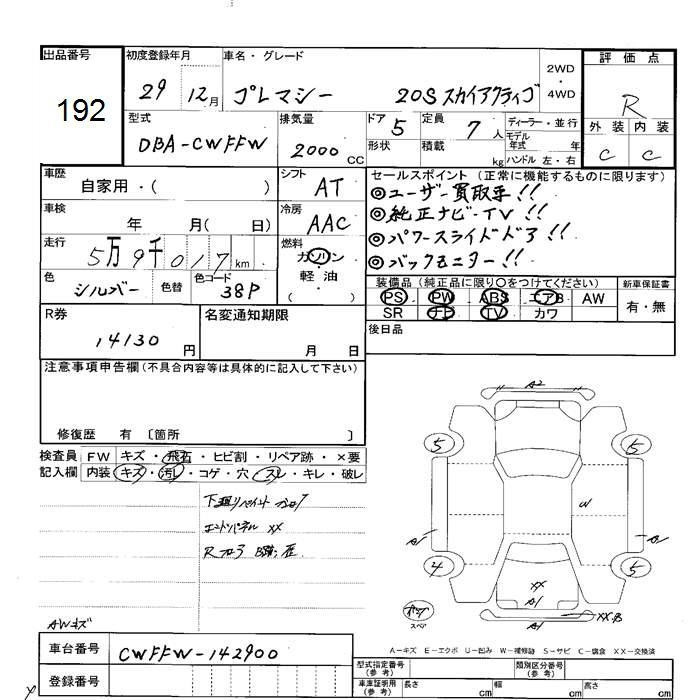 出品番号
192
初度登録年月
29 12月
車名・グレード
プレマシー 20S スカイアクティブ
2WD
・
4WD
評価点
R
外装 内装
C C
型式
DBA-CWFFW
排気量
2000 CC
ドア 5
形状
定員 7 人
積載 kg
ディーラー・並行
モデル年式 年
ハンドル 左・右
車歴
自家用・( )
シフト
AT
車検
年 月( 日)
冷房
AAC
走行
5万9千017km
燃料
ガソリン
軽・油
( )
色
シルバー
色替
色コード
38P
セールスポイント(正常に機能するものに限ります)
◎ユーザー買取車!!
◎純正ナビ-TV!!
◎パワースライドドア!!
◎バックモニター!!
装備品(純正品に限り○をつけてください)
PS PW ABS エアB AW
SR ナビ TV カワ
新車保証書
有・無
後日品
R券
14130 円
名変通知期限
月 日
注意事項申告欄(不具合内容等は具体的に記入して下さい)
修復歴 有 〔箇所 〕
検査員記入欄
FW キズ・飛石・ヒビ割・リペア跡・×要
内装 キズ・汚れ・コゲ・穴・スレ・キレ・破レ
エンドパネル XX
Rフロア
AWキズ
A2
5
5
W
4
5
XX
A1
A1
XX-B
スペア
A-キズ E-エクボ U-凹み W-補修跡 S-サビ C-腐食 XX-交換済
車台番号
CWFFW-142900
登録番号
型式指定番号(参考)
類別区分番号(参考)
車庫証明用(参考)
長さ cm
幅 cm
高さ cm